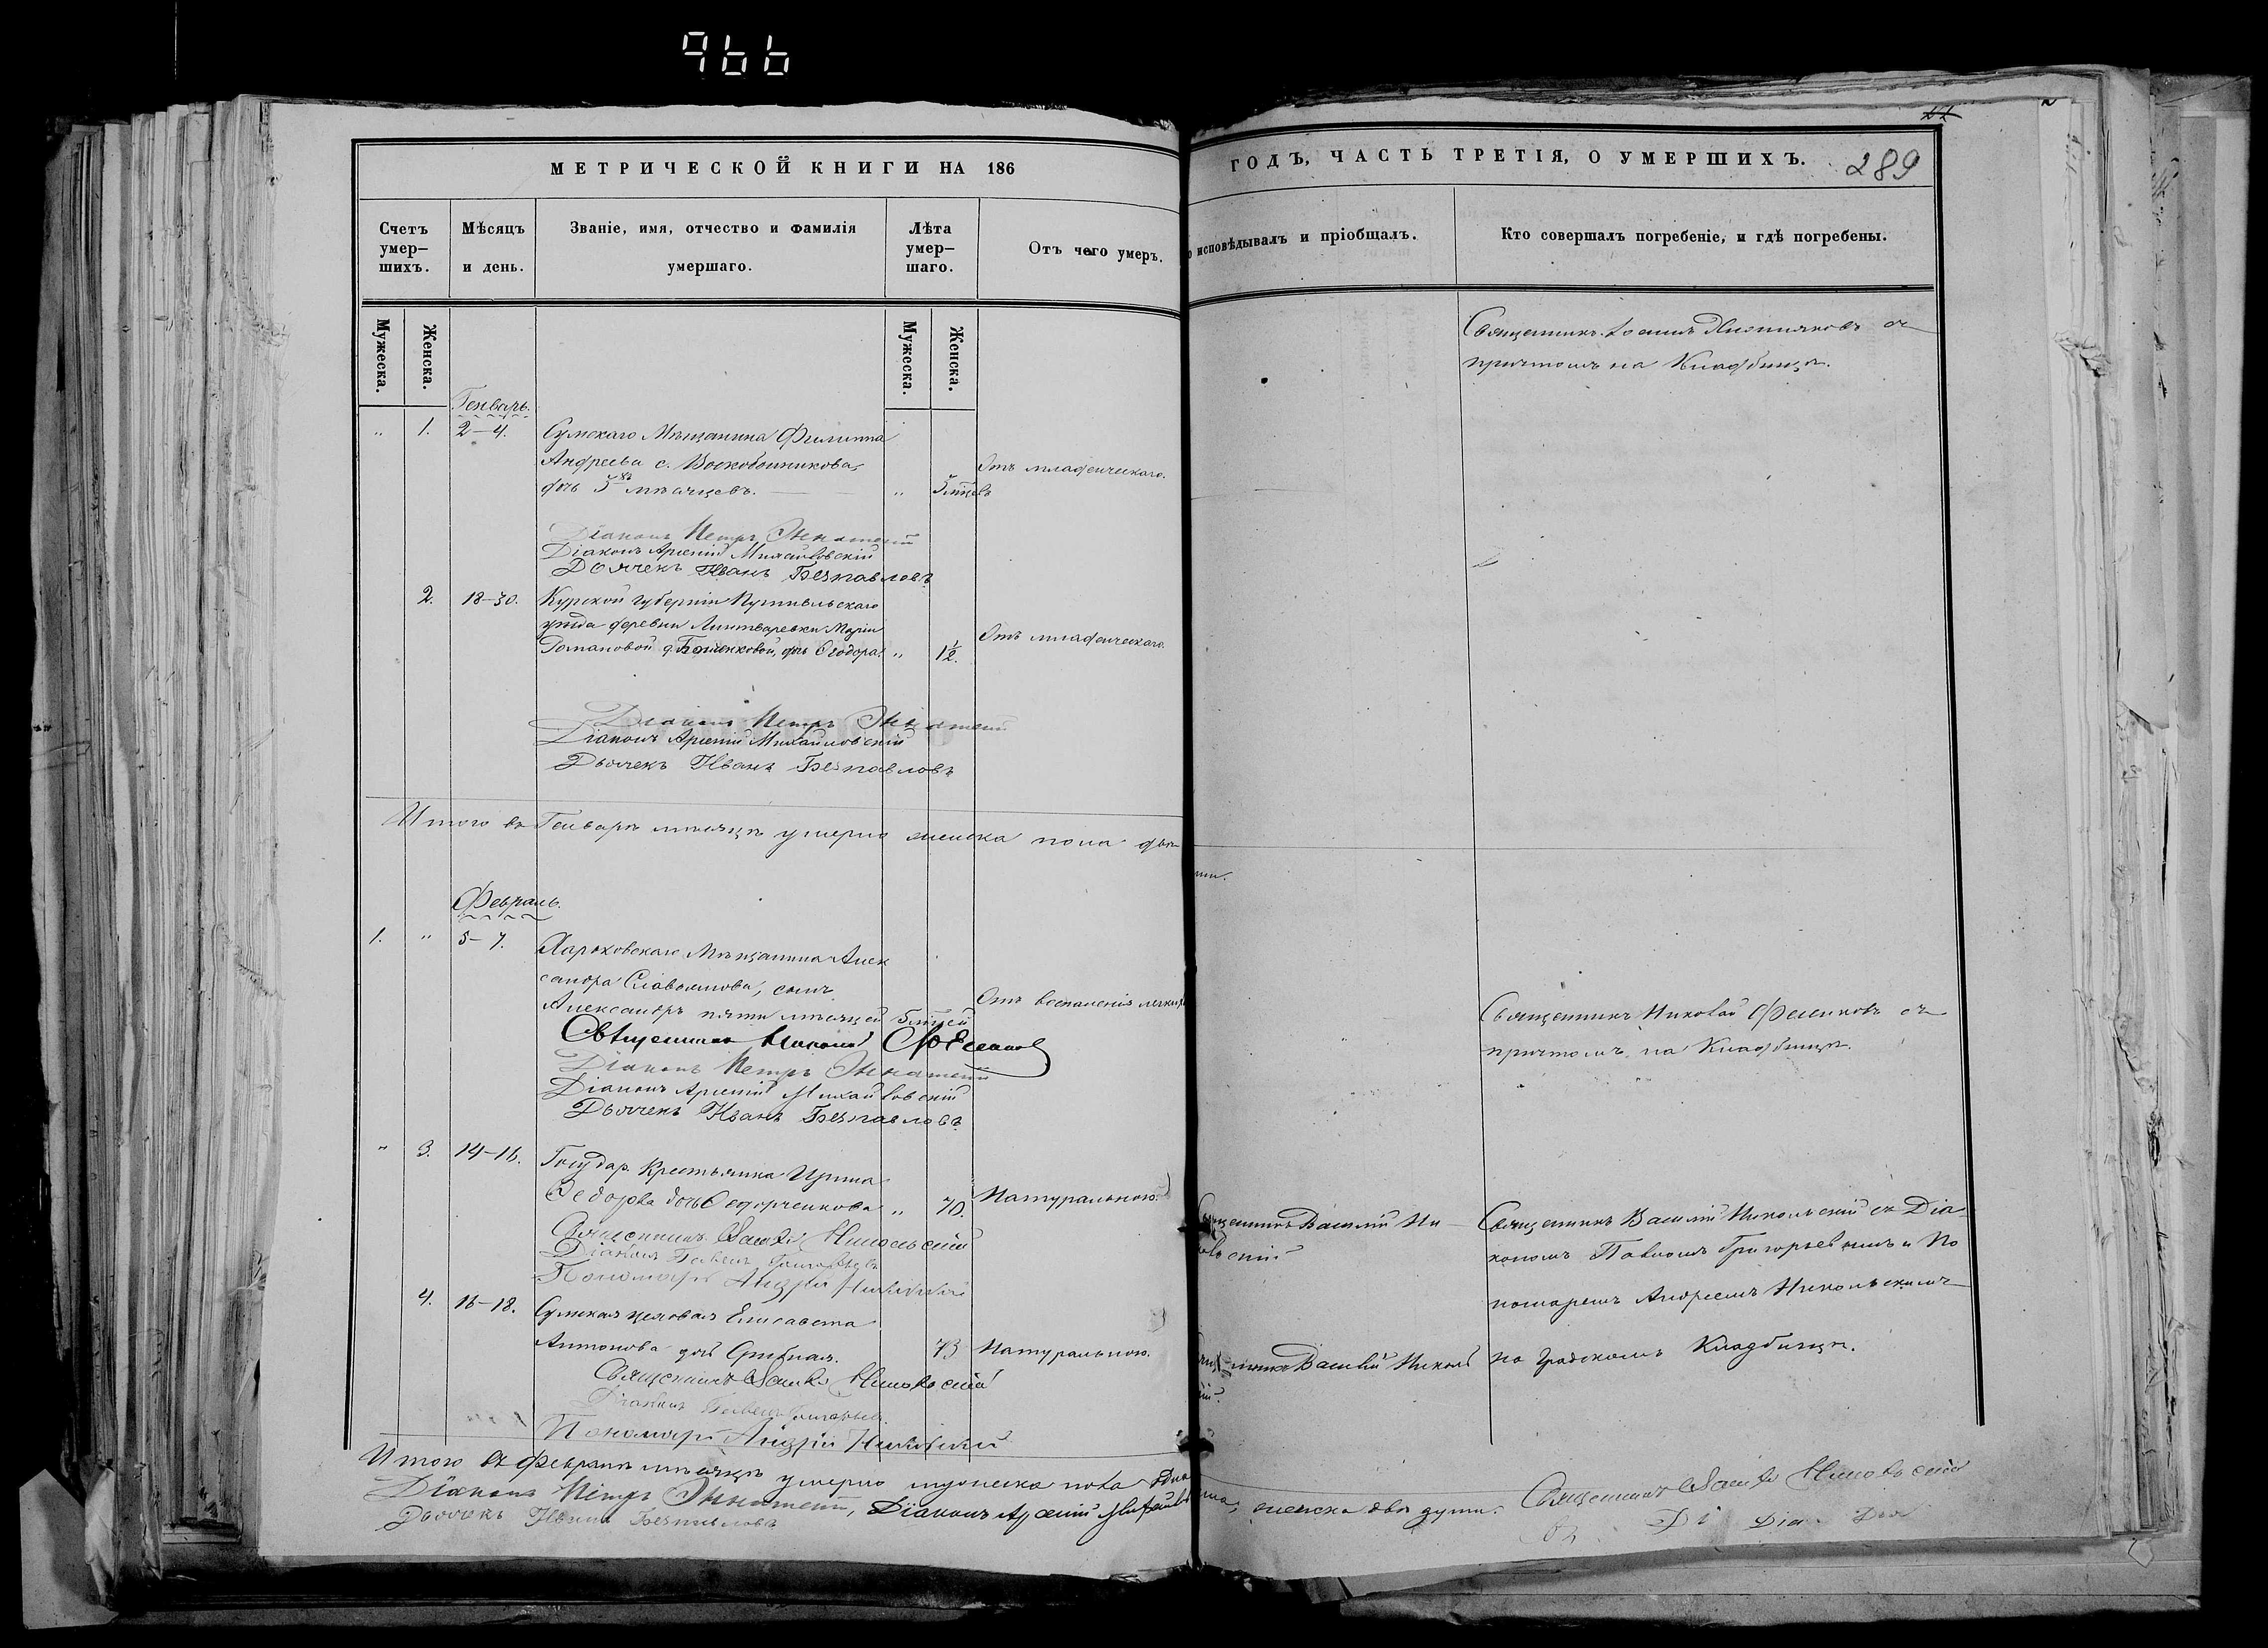 966
МЕТРИЧЕСКОЙ КНИГИ НА 186
ГОДЪ, ЧАСТЬ ТРЕТІЯ, О УМЕРШИХЪ.
289
Счетъ умер-шихъ.
Мѣсяцъ и день.
Званіе, имя, отчество и фамилія умершаго.
Лѣта умер-шаго.
Отъ чего умеръ.
исповѣдывалъ и пріобщалъ.
Кто совершалъ погребеніе, и гдѣ погребены.
Мужеска.
Женска.
Мужеска.
Женска.
Священникъ Іоаннъ съ
причтомъ на Кладбищѣ.
Генварь.
" 1. 2-4. Сумскаго Мѣщанина Филиппа
Андреева с. Воскобойникова,
дочь 5 мѣсяцевъ. " 5 мцевъ
Отъ младенческаго.
Діаконъ Петръ
Діаконъ Арсеній Михайловскій
Дьячекъ Иванъ Безпавловъ
2. 18-30. Курской губерніи Путивльскаго
уѣзда деревни Линтваревки Маріи
Романовой дочь Ѳеодора. " 1½.
Отъ младенческаго.
Діаконъ Петръ
Діаконъ Арсеній Михайловскій
Дьячекъ Иванъ Безпавловъ
Итого въ Генварѣ мѣсяцѣ умерло женска пола двѣ
Февраль.
1. " 5-7. Харьковскаго Мѣщанина Алек
сандра сынъ
Александръ пяти мѣсяцей 5 мцей
Отъ воспаленія легкихъ
Священникъ Николай Ѳедоръ чтомъ
Священникъ Николай съ
причтомъ на Кладбищѣ.
Діаконъ Петръ
Діаконъ Арсеній Михайловскій
Дьячекъ Иванъ Безпавловъ
" 3. 14-16. Государ. Крестьянка Ирина
Ѳедорва дочь Ѳедорченкова " 70. Натурально.
Священникъ Василій Ни-
Священникъ Василій Никольскій съ Діа-
кономъ Павломъ Григорьевымъ и По
номаремъ Андреемъ Никольскимъ
на Градскомъ Кладбищѣ.
Священникъ Василій Никольскій
Діаконъ Павелъ Григорьевъ
Пономарь Андрей Никольскій
4. 16-18. Сумская цеховая Елисавета
Антонова дочь 73 Натурально.
Василій Николь
Священникъ Василій Никольскій
Діаконъ Павелъ Григорьевъ.
Пономарь Андрей Никольскій
Итого въ Февралѣ мѣсяцѣ умерло мужеска пола одна
женска двѣ души. Священникъ Василій Никольскій
Діаконъ Петръ Діаконъ Арсеній
Дьячекъ Иванъ Безпавловъ